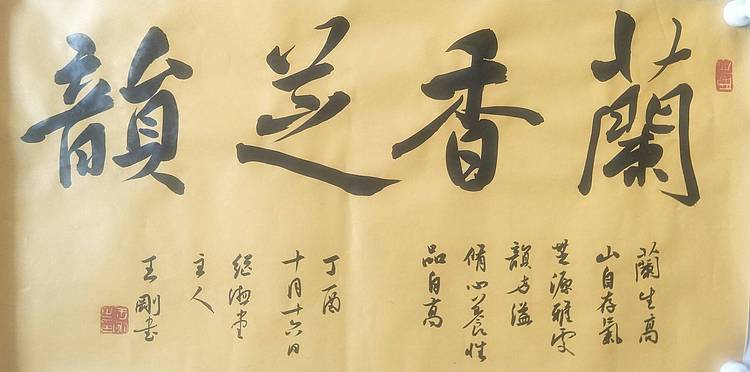 蘭香芝韻
蘭生高
山自存氣
源雅
韻方溢
脩心養性
品自高
丁酉
十月十六日
堂
主人
王剛书